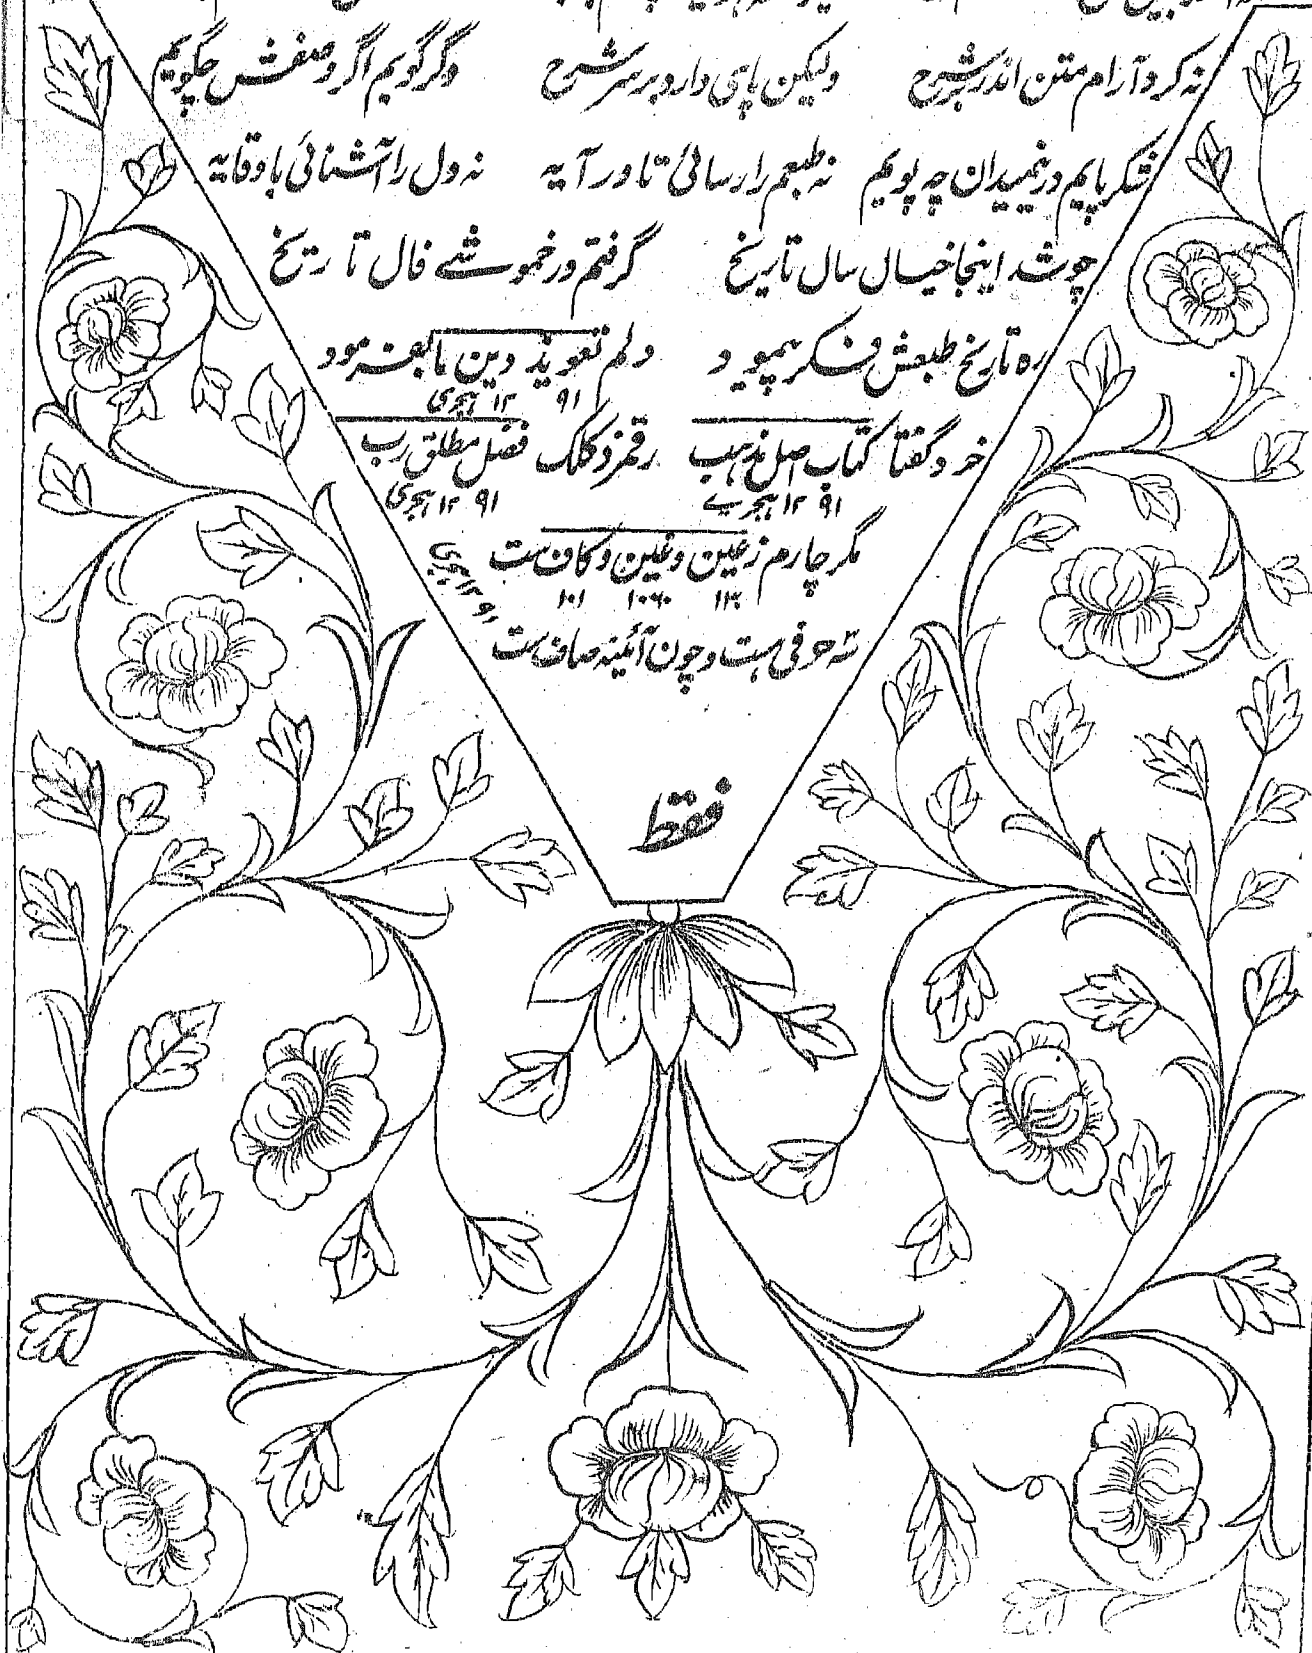 نہ کرد آرام متن اندر شرح ولیکن پا پی دارد بر سر شرح وگر گویم اگر وصفش چگویم
شکر پایم درنمیدان چه پویم نہ طبعم را رسائی تا در آیہ نہ دل را آشنائی با وقایہ
چو شد اینجا خیال سال تاریخ گرفتم در خموشے فال تاریخ
رہ تاریخ طبعش فکر پیمود دلم تعویذ دین ما بفرمود
۱۲۹۱ ہجری
خرد گفتا کتاب اصل مذہب رقم زد کلک فضل مطلق رب
۱۲۹۱ ہجرے ۱۲۹۱ ہجری
مگر چارم ز عین و غین و کاف ست
۱۳۰ ۱۰۶۰ ۱۰۱ ۱۲۹۱ ہجری
سہ حرفی ہست و چون آئینہ صاف ست
فقط